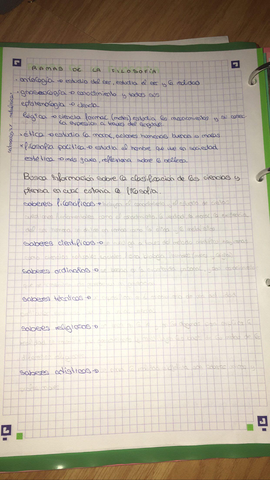 RAMAS DE LA FILOSOFÍA
· ontología → estudia del ser, estudia el ser y la realidad
· gnoseología → conocimiento y todos sus
epistemología → ciencia
lógica → ciencia formal estudia los razonamientos y si
la expresión a través del lenguaje
· ética → estudia la moral, acciones humanas buenas o malas
· filosofía política → estudia al hombre que vive en sociedad
estética → reflexiona sobre la belleza
Busca información sobre la clasificación de las ciencias y
piensa en cual estaría la filosofía.
saberes filosóficos →
saberes científicos →
saberes ordinarios →
saberes técnicos →
saberes religiosos →
saberes artísticos →